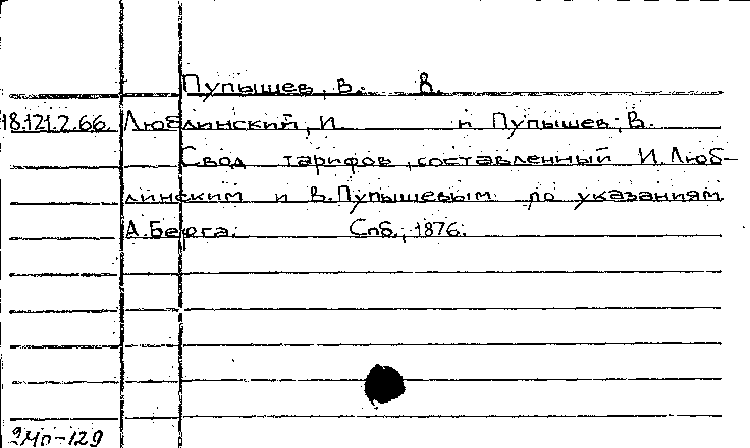 Пупышев, В. В.
18.121.2.66. Люблинский, И. и Пупышев, В.
Свод тарифов, составленный И. Люб-
линским и В. Пупышевым по указаниям
А. Берга. Спб., 1876.